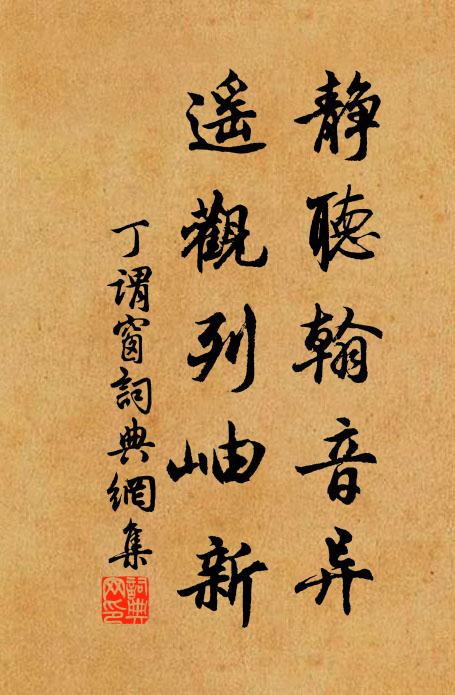 静聽翰音异
遥觀列岫新
丁謂窗詞典網集
詞典网印